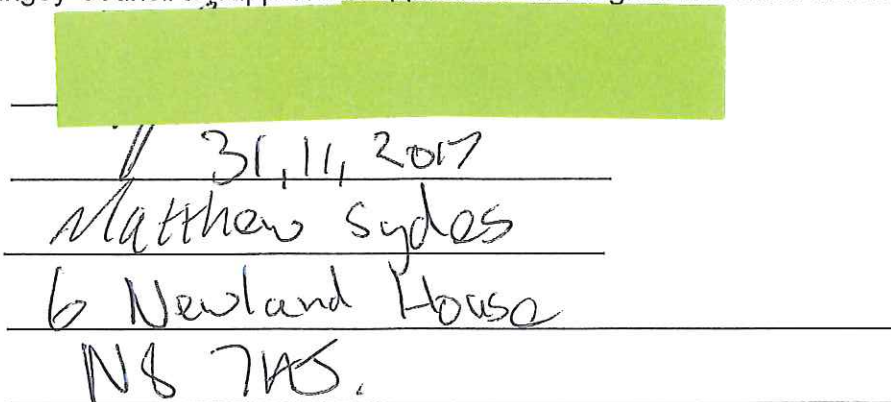 31,11, 2017
Matthew Sydes
6 Newland House
N8 7AS.